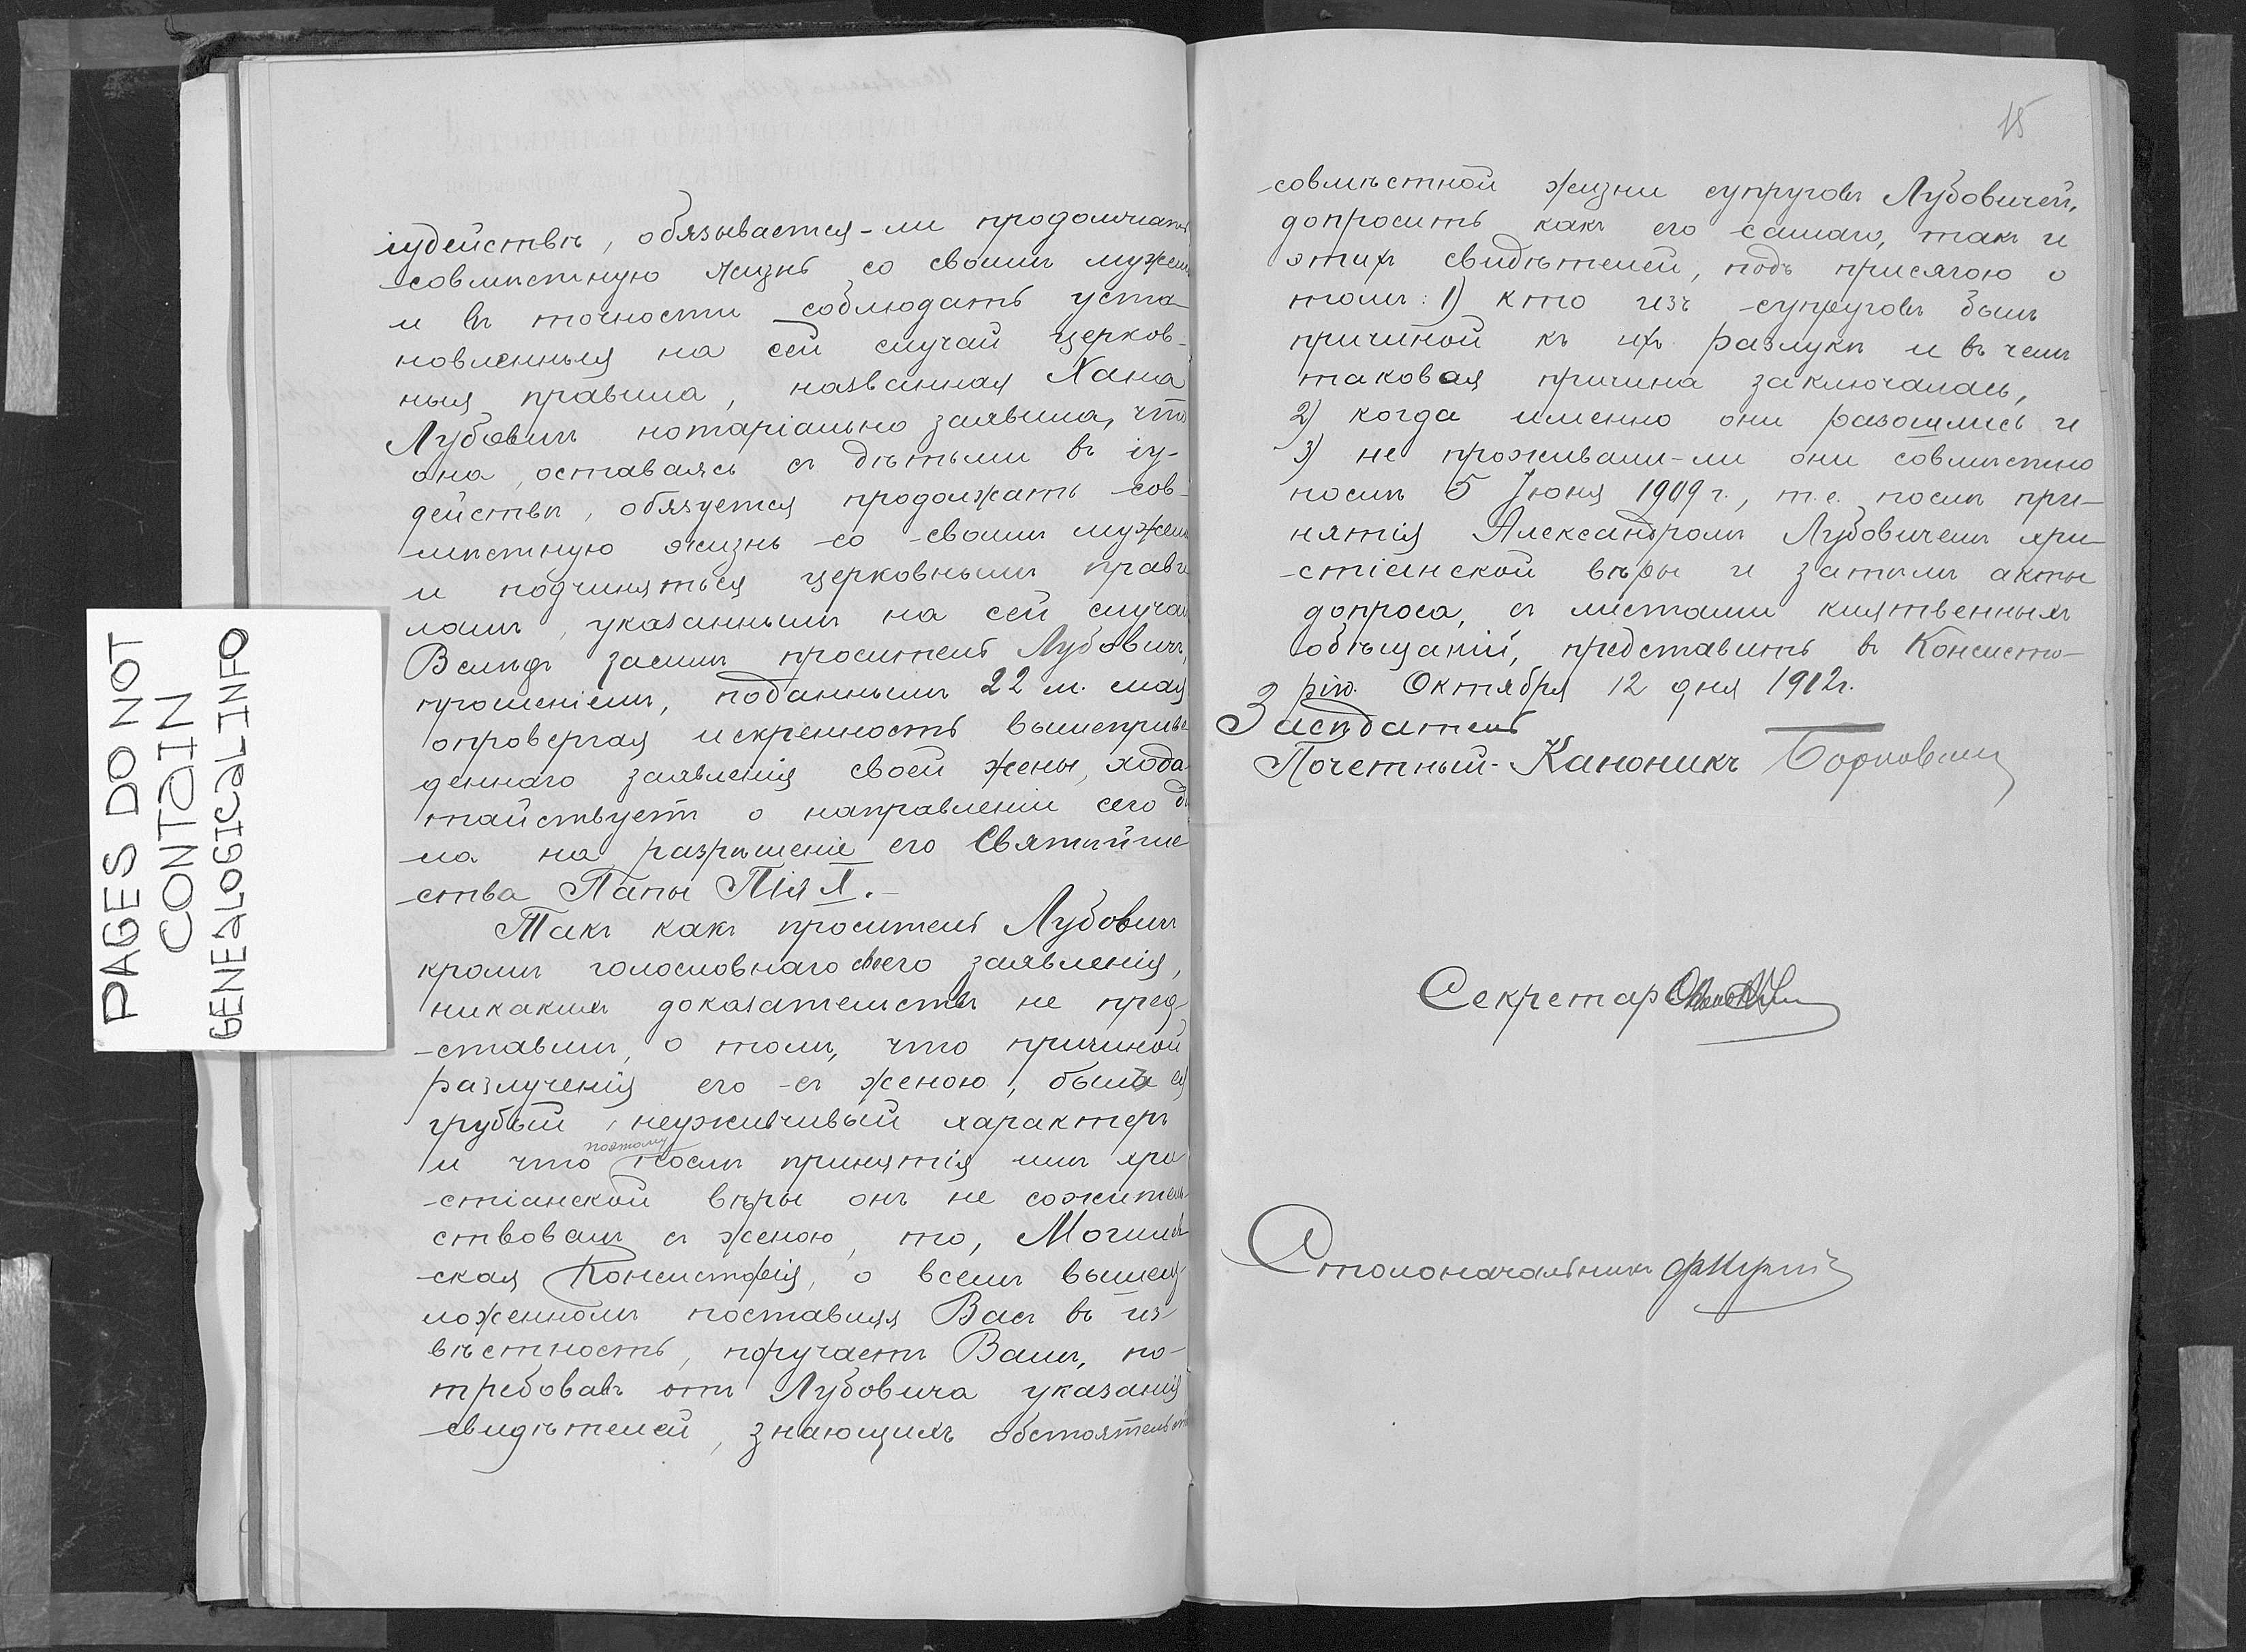 PAGES DO NOT
CONTAIN
GENEALOGICAL INFO
іудействѣ, обязывается-ли продолжать
совмѣстную жизнь со своимъ мужемъ
и въ точности соблюдать уста-
новленныя на сей случай церков-
ныя правила, названная Хана
Лубовичъ нотаріально заявила, что
она, оставаясь съ дѣтьми въ іу-
действѣ, обязуется продолжать сов-
мѣстную жизнь со своимъ мужемъ
и подчиняться церковнымъ прави
ламъ, указаннымъ на сей случай
Вслѣдъ засимъ проситель Лубовичъ,
прошеніемъ, поданнымъ 22 м. мая
опровергая искренность вышеприве
деннаго заявленія своей жены, хода
тайствуетъ о направленіи сего дѣ
ла на разрѣшеніе его Святѣйше
ства Папы Пія X.-
Такъ какъ проситель Лубовичъ
кромѣ голословнаго своего заявленія,
никакихъ доказательствъ не пред-
ставилъ, о томъ, что причиной
разлученія его съ женою, былъ ея
грубый, неуживчивый характеръ
поэтому
и что послѣ принятія имъ хри
стіанской вѣры онъ не сожитель
ствовалъ съ женою, то, Могилев
ская Консисторія, о всемъ вышеиз
ложенномъ поставляя Васъ въ из-
вѣстность, поручаетъ Вамъ, по-
требовавъ отъ Лубовича указанія
свидѣтелей, знающихъ обстоятельства
15
совмѣстной жизни супруговъ Лубовичей,
допросить какъ его самаго, такъ и
этихъ свидѣтелей, подъ присягою о
томъ: 1) кто изъ супруговъ былъ
причиной къ ихъ разлукѣ и въ чемъ
таковая причина заключалась,
2) когда именно они разошлись и
3) не проживали-ли они совмѣстно
послѣ 5 Іюня 1909 г., т.е. послѣ при-
нятія Александромъ Лубовичемъ хри-
стіанской вѣры и затѣмъ акты
допроса, съ листами клятвенныхъ
обѣщаній, представить въ Консисто-
рію. Октября 12 дня 1912г.
Засѣдатель
Почетный-Каноникъ
Секретарь
Столоначальникъ